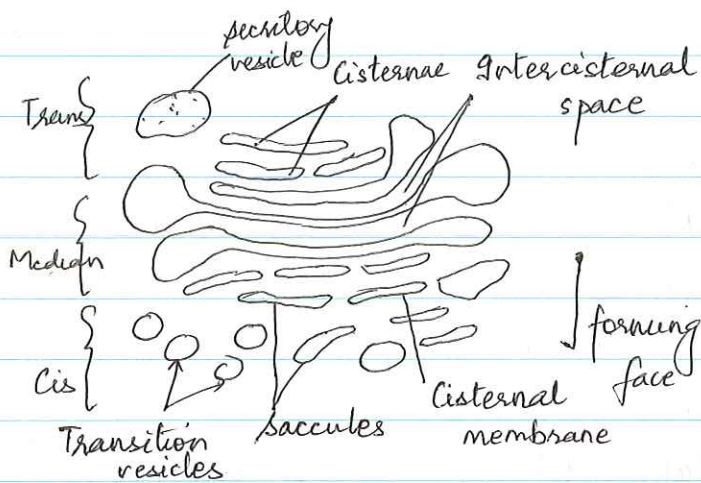 secretory
vesicle
Cisternae
Intercisternal
space
Trans
Median
Cis
forming
face
Transition
vesicles
saccules
Cisternal
membrane